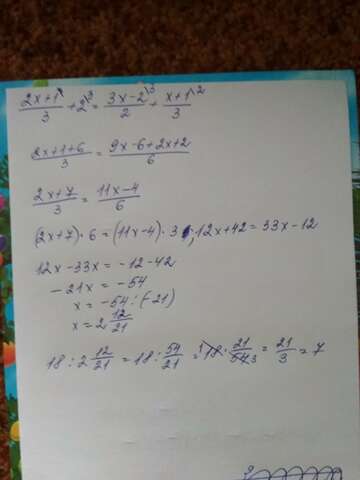 (2x+1)/3 + 2\³ = (3x-2\³)/2 + (x+1\²)/3
(2x+1+6)/3 = (9x-6+2x+2)/6
(2x+7)/3 = (11x-4)/6
(2x+7)·6 = (11x-4)·3; 12x+42 = 33x-12
12x-33x = -12-42
-21x = -54
x = -54:(-21)
x = 2 12/21
18 : 2 12/21 = 18 : 54/21 = ¹18 · 21/54₃ = 21/3 = 7